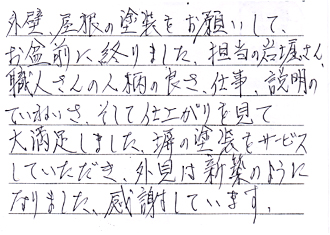 外壁、屋根の塗装をお願いして、
お盆前に終りました、担当の岩堀さん、
職人さんの人柄の良さ、仕事、説明の
ていねいさ、そして仕上がりを見て
大満足しました、塀の塗装をサービス
していただき、外見は新築のように
なりました、感謝しています。